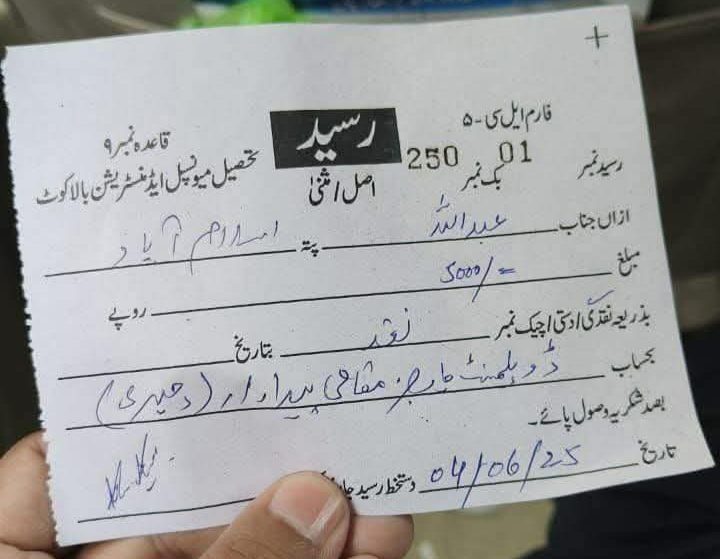 فارم ایل سی - ۵
رسید
قاعدہ نمبر ۹
رسید نمبر 01 بک نمبر 250
اصل / مثنیٰ
تحصیل میونسپل ایڈمنسٹریشن بالاکوٹ
ازاں جناب عبداللہ پتہ اسلام آباد
مبلغ 5000/= روپے
بذریعہ نقدی / دستی / چیک نمبر نقد بتاریخ
بحساب ڈویلپمنٹ چارجز مقامی پیداوار
بصد شکریہ وصول پائے۔
تاریخ 04/06/25 دستخط رسید